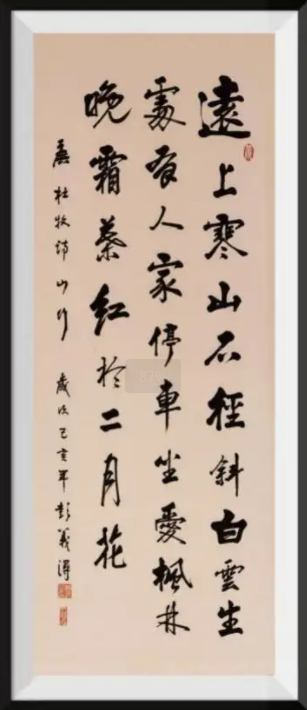 遠上寒山石徑斜白雲生
處有人家停車坐愛楓林
晚霜葉紅於二月花
杜牧詩山行 歲次己亥年彭義